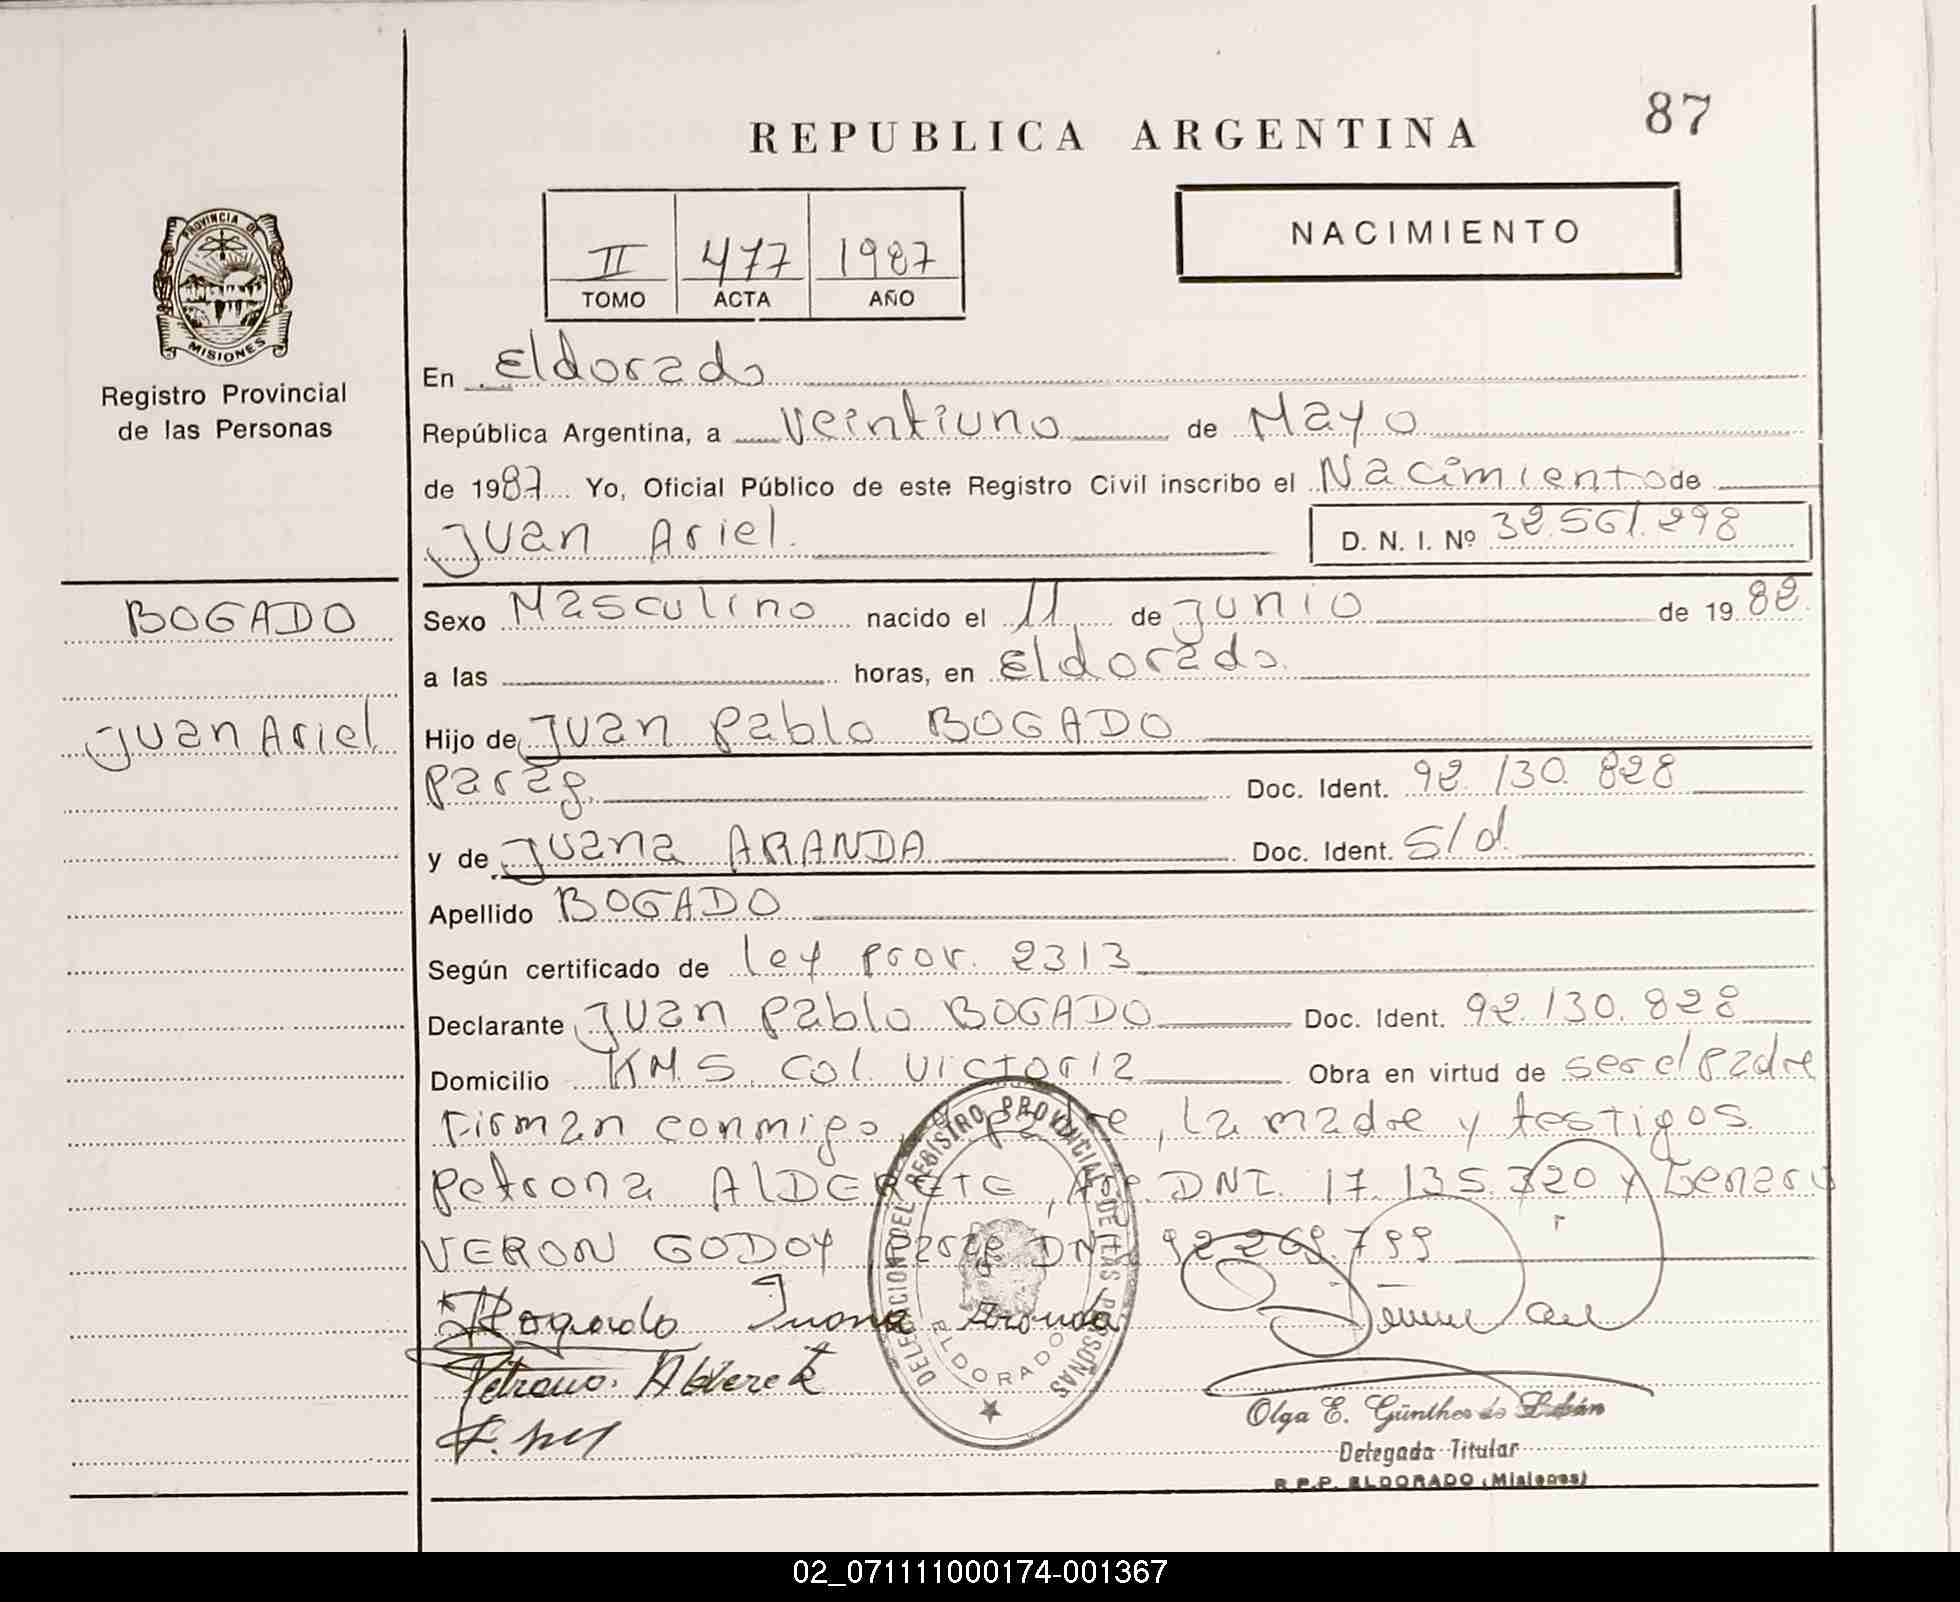 87
REPUBLICA ARGENTINA
NACIMIENTO
II 477 1987
TOMO ACTA AÑO
PROVINCIA DE
MISIONES
Registro Provincial
de las Personas
BOGADO
Juan Ariel
En Eldorado
República Argentina, a Veintiuno de Mayo
de 1987 Yo, Oficial Público de este Registro Civil inscribo el Nacimiento de
Juan Ariel. D. N. I. Nº 32.561.298
Sexo Masculino nacido el 11 de Junio de 1982.
a las horas, en Eldorado.
Hijo de Juan Pablo BOGADO
parag. Doc. Ident. 92.130.828
y de Juana ARANDA Doc. Ident. s/d.
Apellido BOGADO
Según certificado de ley prov. 2313
Declarante Juan Pablo BOGADO Doc. Ident. 92.130.828
Domicilio KM.5. Col. Victoria Obra en virtud de ser el padre
Firman conmigo, el padre, la madre y testigos
Petrona AlDERETE, Arg. DNI. 17.135.320 y Genaro
VERON GODOY parag DNI 92.269.799
Bogado Juana Aranda
Petrona Alderete
DELEGACION DEL REGISTRO PROVINCIAL DE LAS PERSONAS
ELDORADO
Olga E. Günther de
Delegada Titular
R.P.P. ELDORADO (Misiones)
02_071111000174-001367